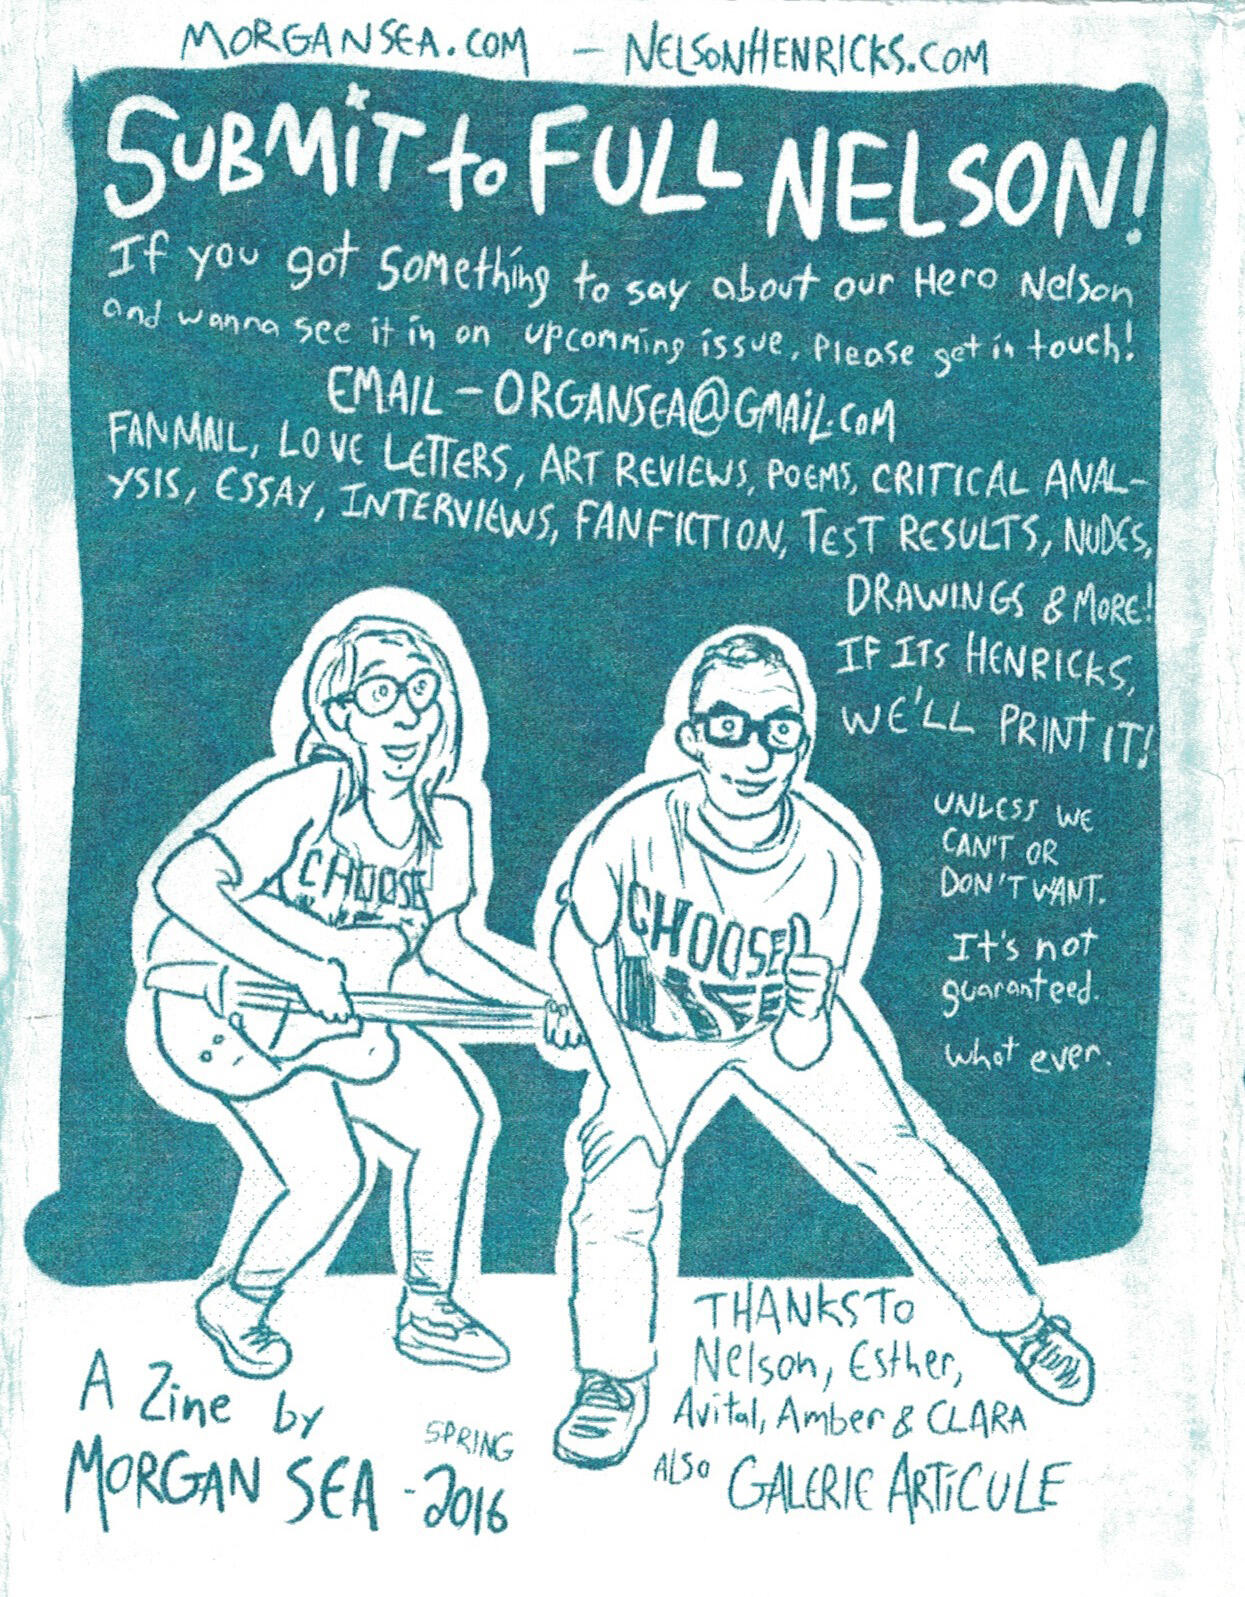 MORGANSEA.COM – NELSONHENRICKS.COM
SUBMiT to FULL NELSON!
If you got something to say about our Hero Nelson
and wanna see it in on upcomming issue, Please get in touch!
EMAIL – ORGANSEA@GMAiL.COM
FANMAIL, LOVE LETTERS, ART REVIEWS, POEMS, CRITICAL ANAL-
YSIS, ESSAY, INTERVIEWS, FANFICTION, TEST RESULTS, NUDES,
DRAWINGS & MORE!
IF ITS HENRICKS,
WE'LL PRINT IT!
UNLESS WE
CAN'T OR
DON'T WANT.
It's not
guaranteed.
what ever.
CHOOSE
CHOOSE
THANKS TO
Nelson, Esther,
Avital, Amber & CLARA
ALSO GALERIE ARTiCULE
A Zine by
MORGAN SEA - SPRING
2016